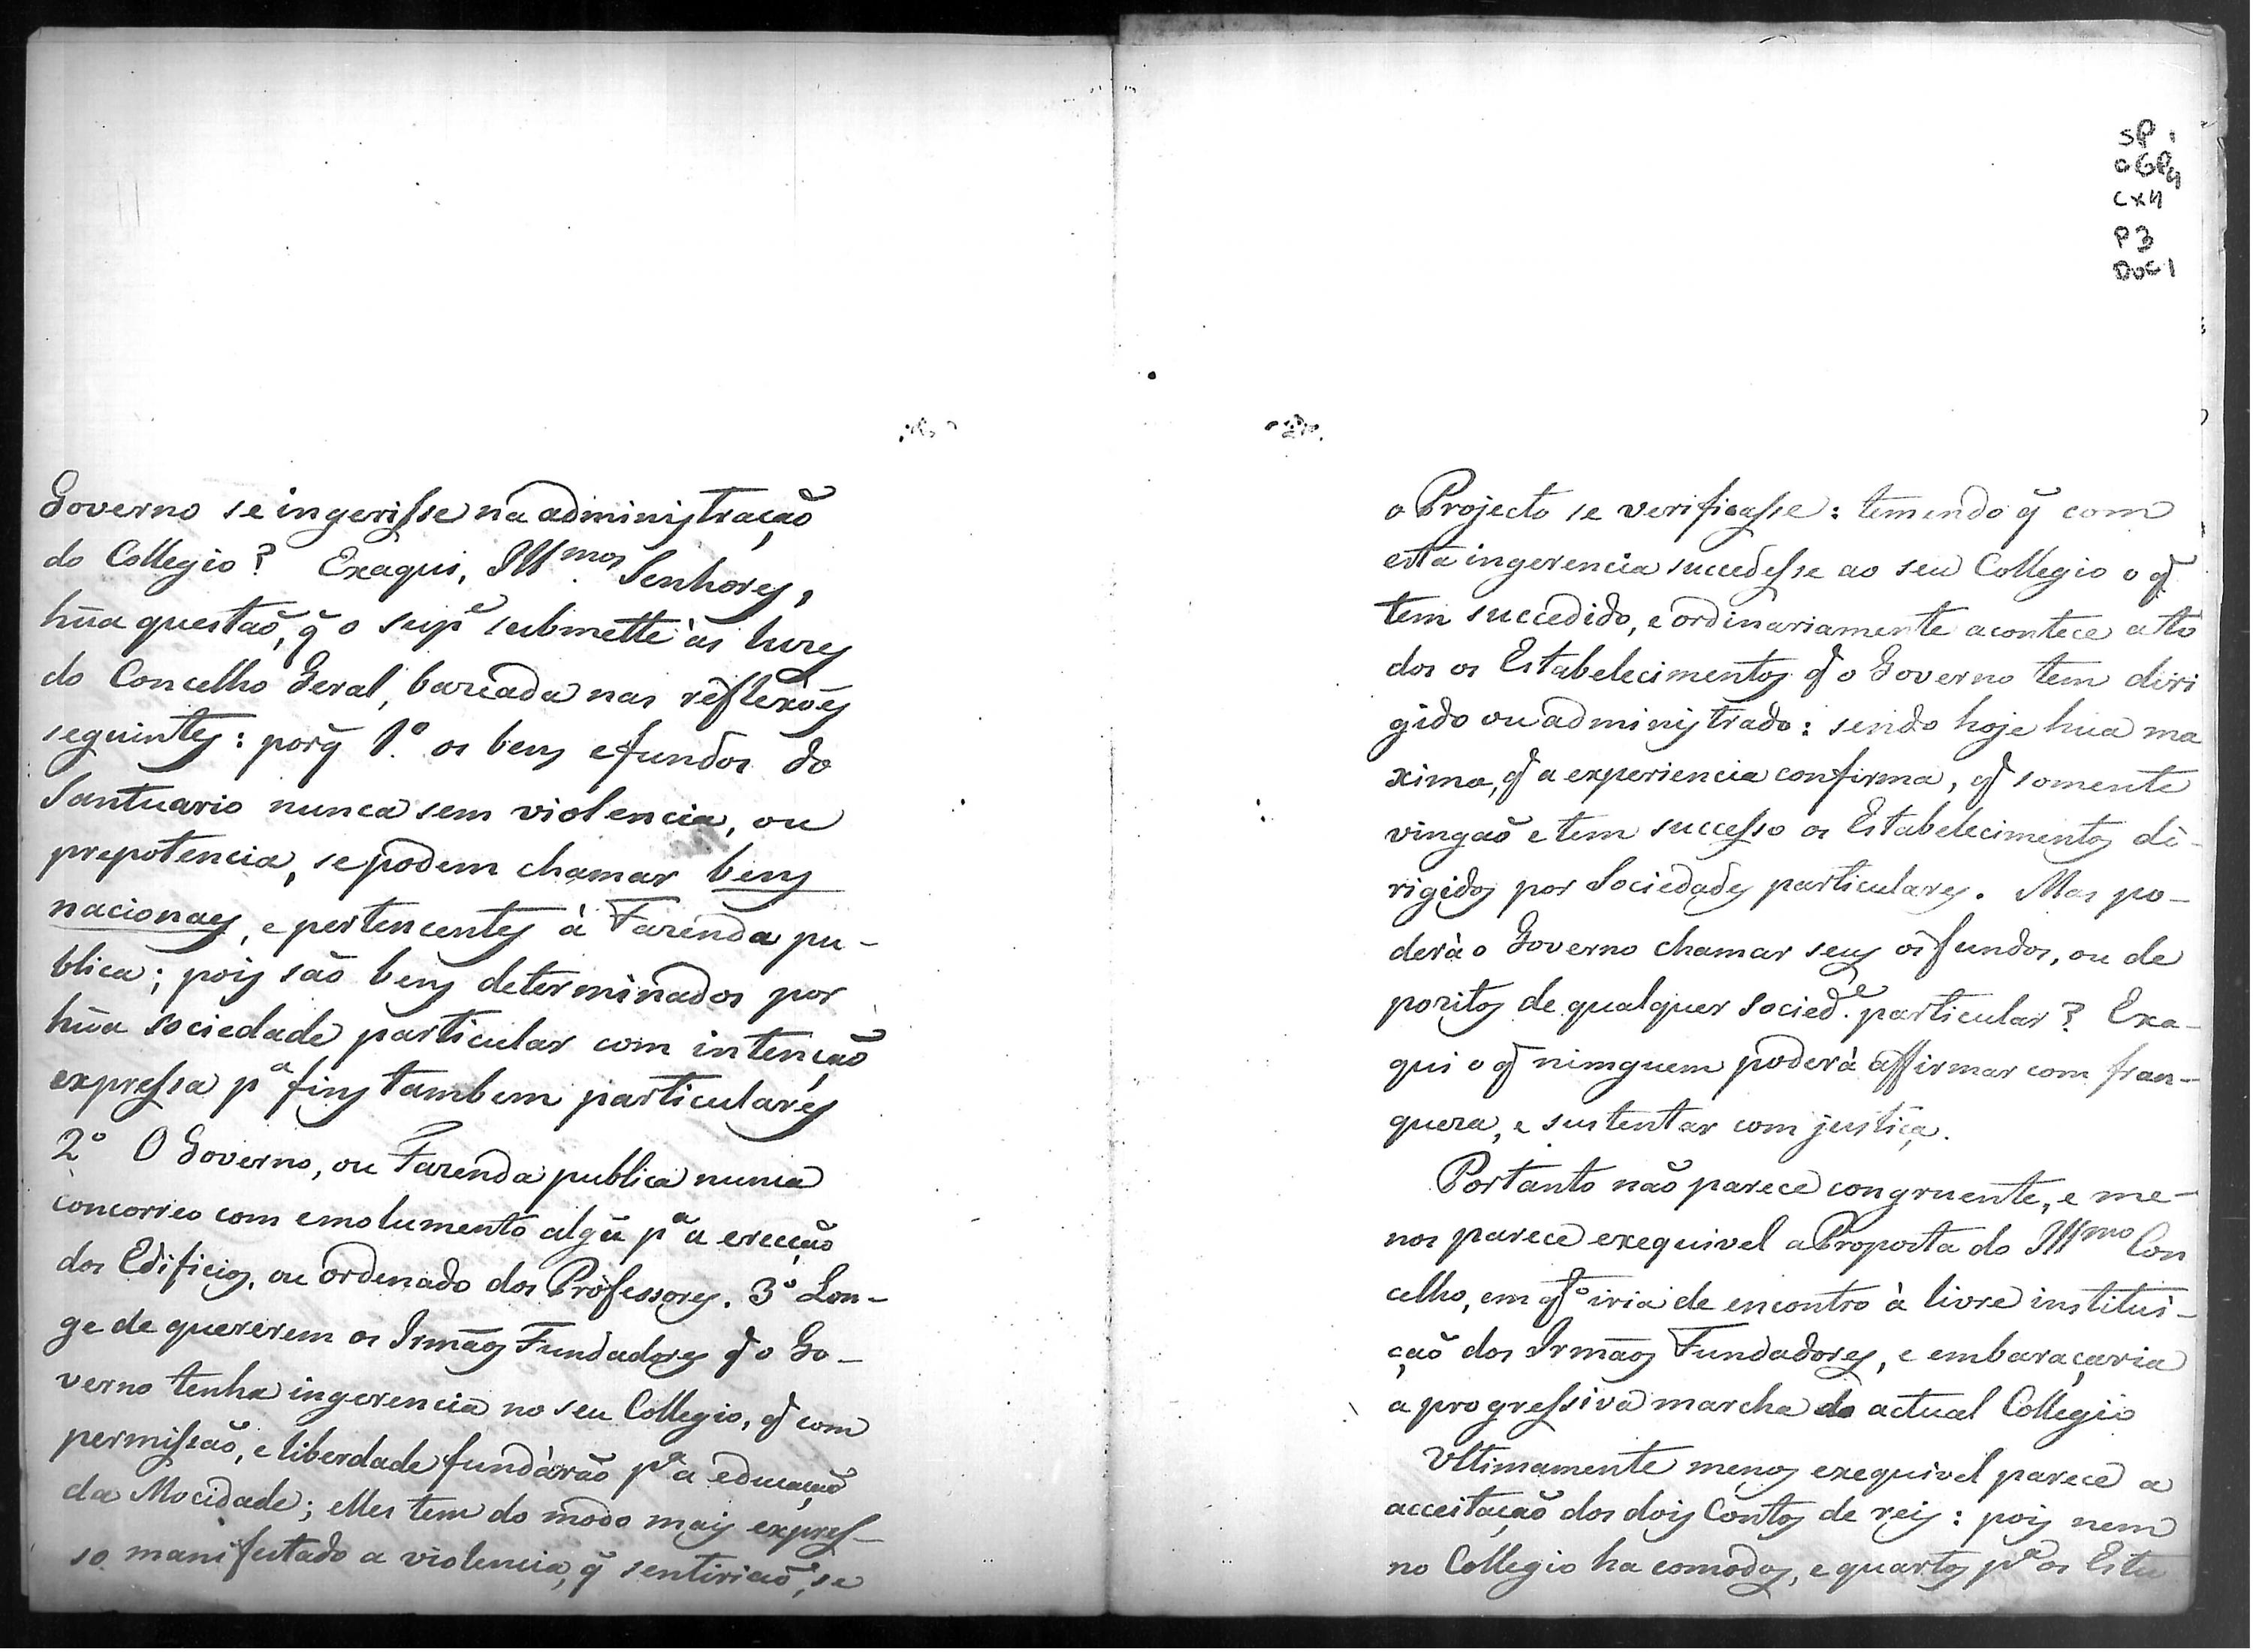 Governo se ingerisse na administração
do Collegio? Exaqui, Illmos Senhores,
hũa questaõ, q̃ o supe submette às luzes
do Concelho Geral, bazeada nas reflexões
seguintes: porq̃ 1.º os bens e fundos do
Santuario nunca sem violencia, ou
prepotencia, se podem chamar bens
nacionaes, e pertencentes à Fazenda pu-
blica; pois são bens determinados por
hũa sociedade particular com intenção
expressa pª fins tambem particulares
2º O Governo, ou Fazenda publica nunca
concorreo com emolumento algũ pª a erecção
dos Edificios, ou ordenado dos Professores. 3º Lon-
ge de quererem os Irmãos Fundadores q̃ o Go-
verno tenha ingerencia no seu Collegio, q̃ com
permissaõ, e liberdade fundàrão pª a educação
da Mocidade; elles tem do modo mais expres-
so manifestado a violencia, q̃ sentiriaõ, se
SP
CX4
P3
DOC1
o Projecto se verificasse: temendo q̃ com
esta ingerencia succedesse ao seu Collegio o q̃
tem succedido, e ordinariamente acontece a to
dos os Estabelecimentos q̃ o Governo tem diri
gido ou administrado: sendo hoje hũa ma
xima, q̃ a experiencia confirma, q̃ somente
vingaõ e tem successo os Estabelecimentos di-
rigidos por Sociedades particulares. Mas po-
derà o Governo chamar seus os fundos, ou de
pozitos de qualquer socied.e particular? Exa-
qui o q̃ nimguem poderà affirmar com fran-
queza, e sustentar com justiça.
Portanto não parece congruente, e me-
nos parece exequivel a Proposta do Illmo Con
celho, em q̃to iria de encontro à livre institui-
çaõ dos Irmãos Fundadores, e embaraçaria
a progressiva marcha do actual Collegio
Ultimamente menos exequivel parece a
acceitação dos dois Contos de reis: pois nem
no Collegio ha comodos, e quartos pª os Estu